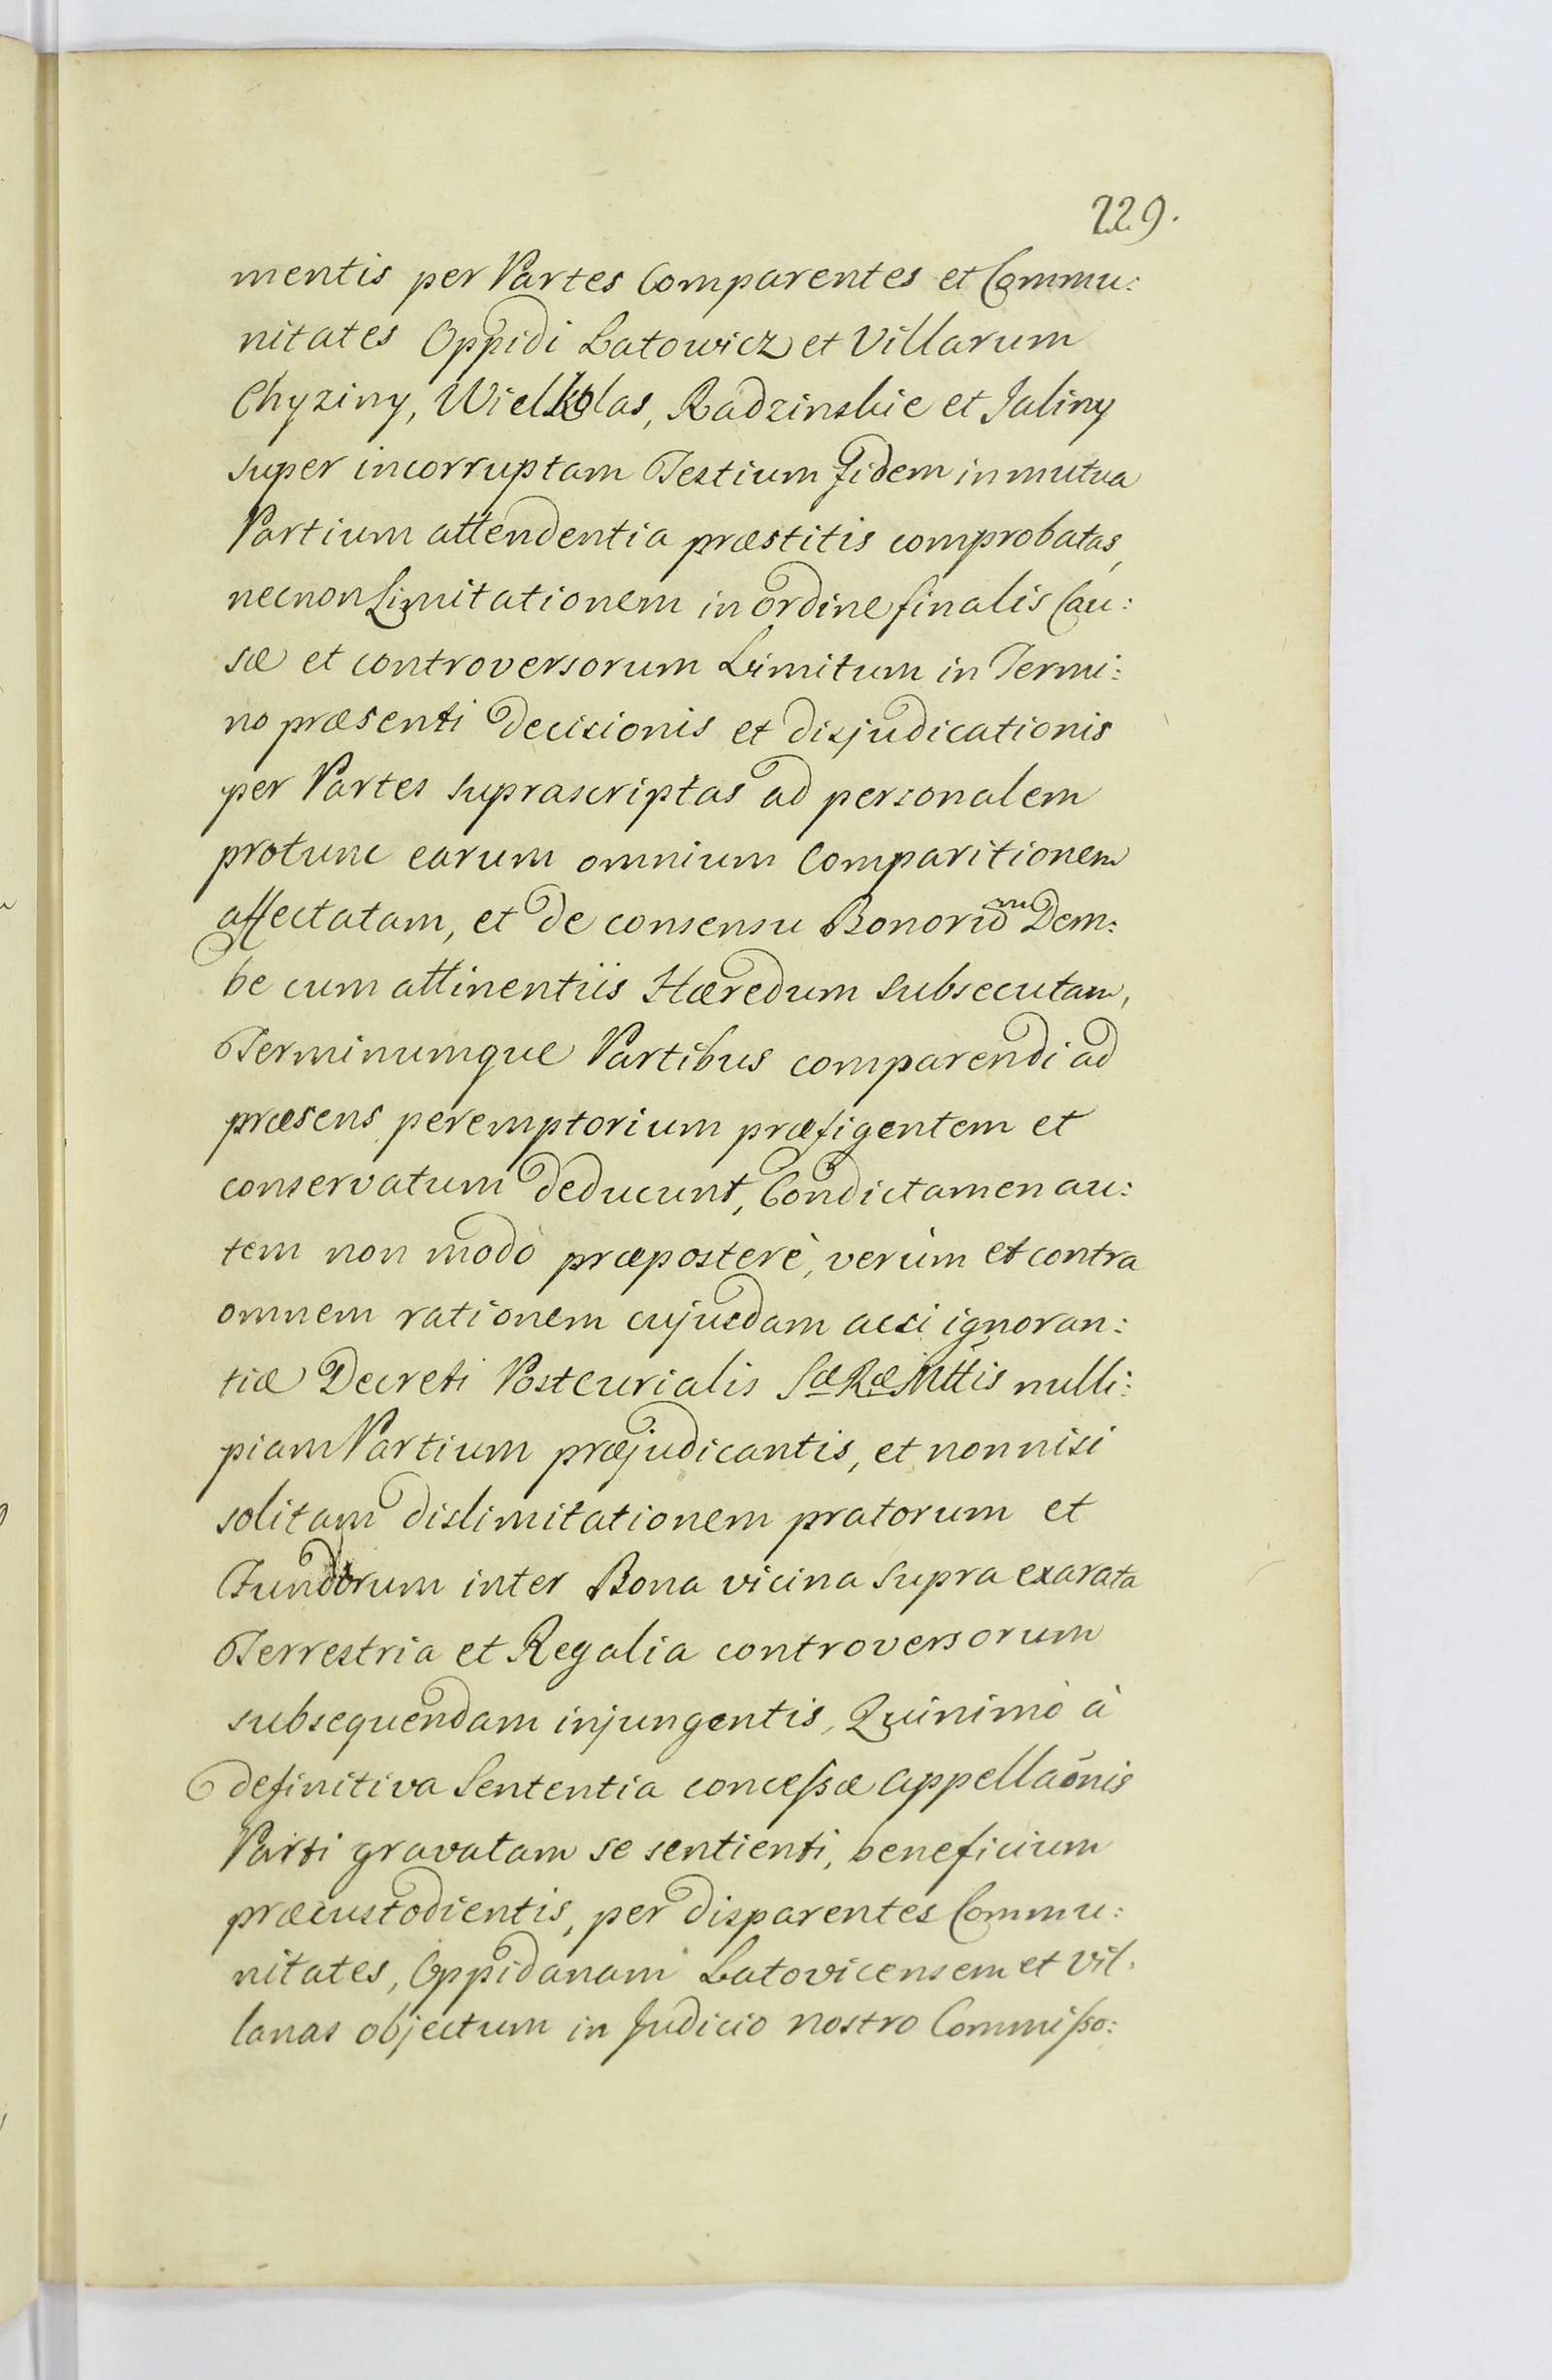 229.
mentis per Partes Comparentes et Commu:
nitates Oppidi Latowicz et Villarum
Chyziny, Wielkolas, Radzinskie et Jaliny
super incorruptam Testium Fidem in mutua
Partium attendentia præstitis comprobatas,
necnon Limitationem in ordine finalis Cau:
sæ et controversorum Limitum in Termi:
no præsenti decisionis et disjudicationis
per Partes suprascriptas ad personalem
protunc earum omnium Comparitionem
affectatam, et de consensu Dem:
be cum attinentiis Hæredum subsecutam,
Terminumque Partibus comparendi ad
præsens peremptorium præfigentem et
conservatum deducunt, Condictamen au:
tem non modò præposterè, verùm et contra
omnem rationem cujusdam acsi ignoran:
tiæ Decreti Postcurialis Sæ Ræ Mttis nulli:
piam Partium præjudicantis, et nonnisi
solitam dislimitationem pratorum et
Fundorum inter Bona vicina supra exarata
Terrestria et Regalia controversorum
subsequendam injungentis, Quinimò à
definitiva Sententia concessæ appellaõnis
Parti gravatam se sentienti, beneficium
præcustodientis, per disparentes Commu:
nitates, Oppidanam Latovicensem et Vil.
lanas objectum in Judicio nostro Commisso: